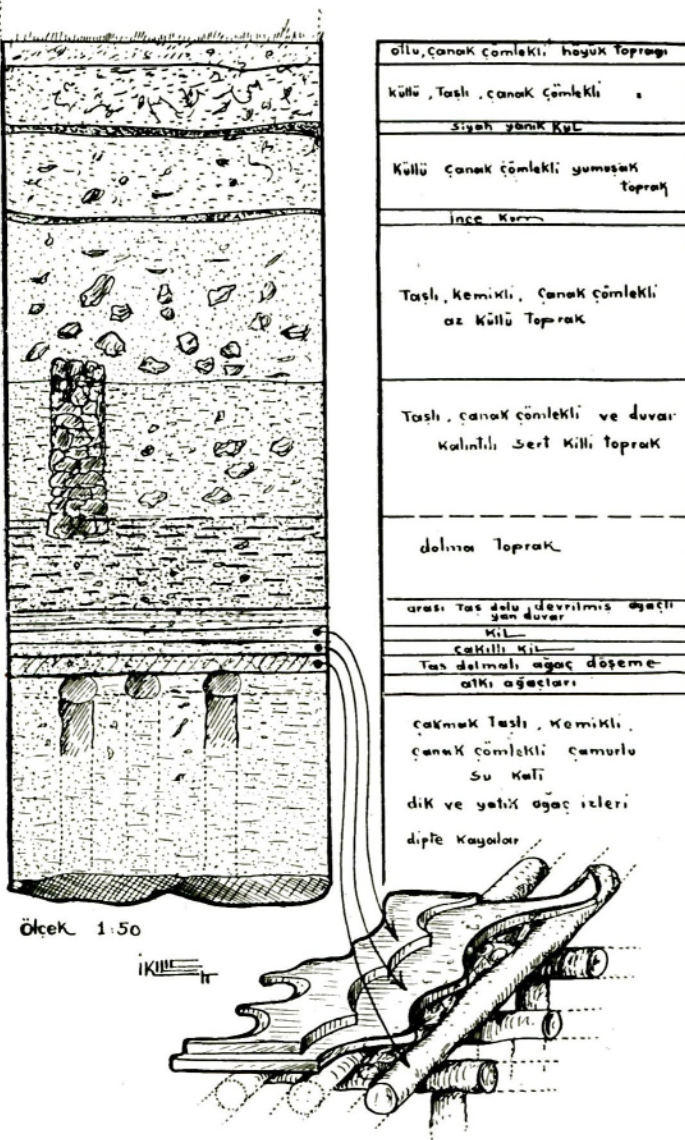 otlu, çanak çömlekli höyük toprağı
küllü, Taşlı, çanak çömlekli
siyah yanık kül
Küllü çanak çömlekli yumuşak
toprak
ince Kum
Taşlı, kemikli, çanak çömlekli
az küllü Toprak
Taşlı, çanak çömlekli ve duvar
kalıntılı sert killi toprak
dolma toprak
arası Taş dolu, devrilmiş ağaçlı
yan duvar
KiL
çakıllı KiL
Taş dolmalı ağaç döşeme
atkı ağaçları
çakmak Taşlı, kemikli,
çanak çömlekli çamurlu
su katı
dik ve yatık ağaç izleri
dipte kayalar
ölçek 1:50